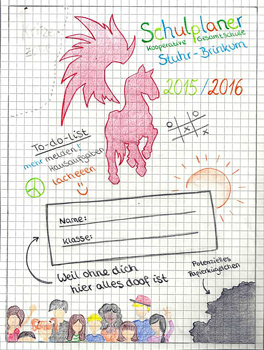 Schulplaner
Kooperative Gesamtschule
Stuhr-Brinkum
2015/2016
To-do-list
mehr melden!
Hausaufgaben
Lacheeen
Name:
Klasse:
Weil ohne dich
hier alles doof ist
Potenzielles
Papierkügelchen